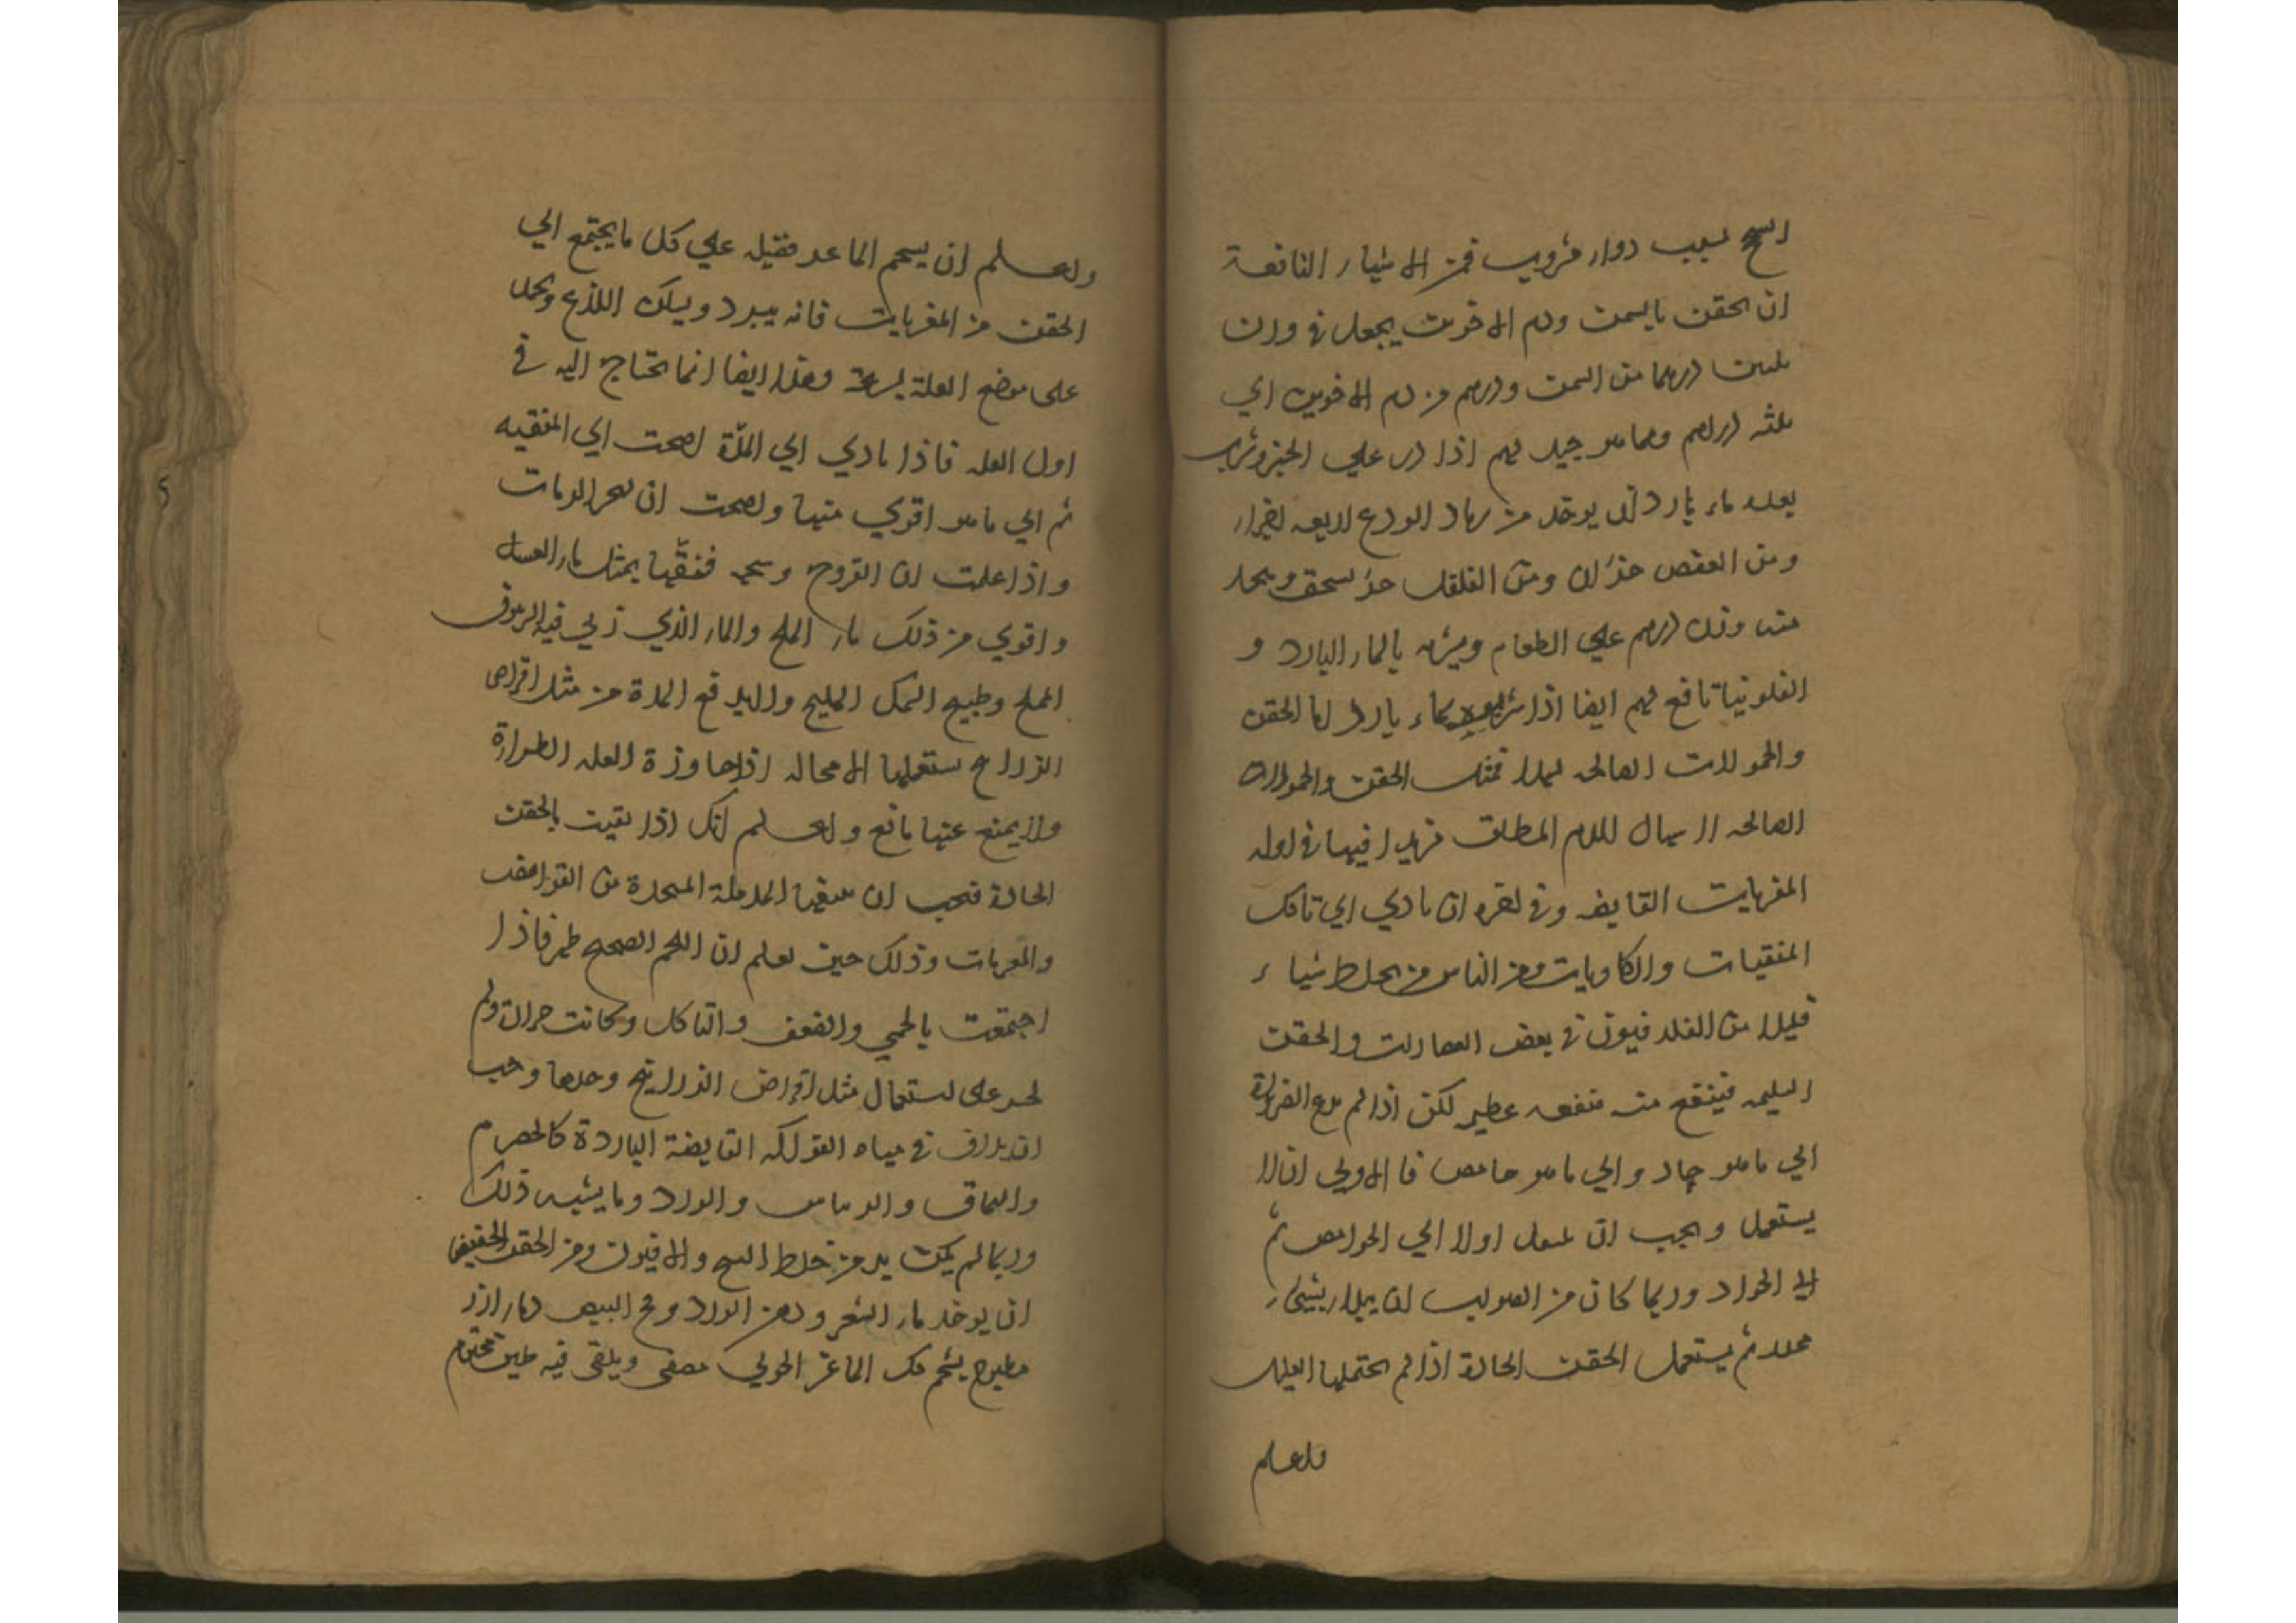 السحج بسبب دواء مشروب فمن الاشياء النافعة
ان يحقن بالسمن ودم الاخوين يجعل في وزن
ثلثين درهما من السمن ودرهم من دم الاخوين الي
ثلثه دراهم ومما هو جيد لهم اذا ذر علي الخبز وشرب
بعده ماء بارد ان يوخذ من رماد الودع اربعه اجزاء
ومن العفص جزءان ومن الفلفل جزء يسحق ويجعل
منه وزن درهم علي الطعام ويشربه بالماء البارد و
الفلونيا نافع لهم ايضا اذا شربوه بماء بارد اما الحقن
والحمولات الصالحه لهذا فمثل الحقن والحمولات
الصالحه لاسهال الدم المطلق مزيدا فيها في اوله
المغريات القابضه وفي اخره ان تادي الي تاكل
المنقيات والكاويات ومن الناس من يخلط شياء
قليلا من الفلدفيون في بعض العصارات والحقن
السليمه فينتفع منه منفعه عظيمه لكن اذا لم تدع الضرورة
الي ما هو حاد والي ما هو حامض فالاولي ان لا
يستعمل ويجب ان اولا الي الحوامض ثم
الي الحواد وربما كان من الصواب ان يبدا بشيء
مخدر ثم يستعمل الحقن الحادة اذا لم يحتملها العليل
واعلم
واعلم ان شحم الماعز فضيله علي كل ما يجتمع الي
الحقن من المغريات فانه يبرد ويسكن اللذع ويجمد
على موضع العلة بسرعة وهذا ايضا انما تحتاج اليه في
اول العله فاذا تادي الي المدّة احتجت الي المنقيه
ثم الي ما هو اقوي منها واحتجت ان تهجر الدسومات
واذا علمت ان القروح وسخه فنقّها بمثل ماء العسل
واقوي من ذلك ماء الملح والماء الذي ربي فيه الزيتون
المملح وطبيخ السمك المليح ولا بد مع المدة من مثل اقراص
الزرانيخ تستعملها لا محاله اذا جاوزة العله الطراوة
ولا يمنع عنها مانع واعلم انك اذا نقيت بالحقن
الحادة فيجب ان تتبعها المدملة المتخذة من القوابض
والمغريات وذلك حين تعلم ان اللحم الصحيح ظهر فاذا
اجتمعت بالحمي والضعف والتاكل وكانت حرارة ولم
تجسر على استعمال مثل اقراض الزرانيخ وحدها وجب
ان يداف في مياه الفواكه القابضة الباردة كالحصرم
والسماق والريباس والورد وما يشبه ذلك
وربما لم يكن بد من خلط البنج والافيون ومن الحقن الخفيفه
ان يوخذ ماء الشعير ودهن الورد ومح البيض وماء ارز
مطبوخ بشحم كلي الماعز الحولي مصفى ويلقى فيه طين مختوم